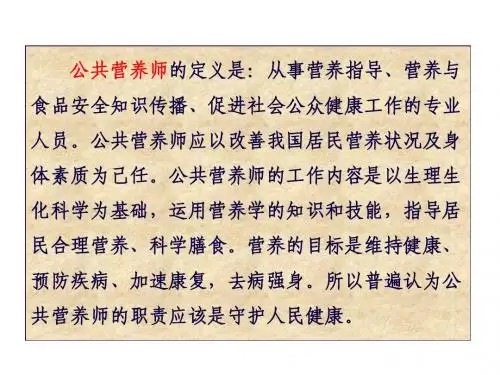 公共营养师的定义是：从事营养指导、营养与
食品安全知识传播、促进社会公众健康工作的专业
人员。公共营养师应以改善我国居民营养状况及身
体素质为己任。公共营养师的工作内容是以生理生
化科学为基础，运用营养学的知识和技能，指导居
民合理营养、科学膳食。营养的目标是维持健康、
预防疾病、加速康复，去病强身。所以普遍认为公
共营养师的职责应该是守护人民健康。